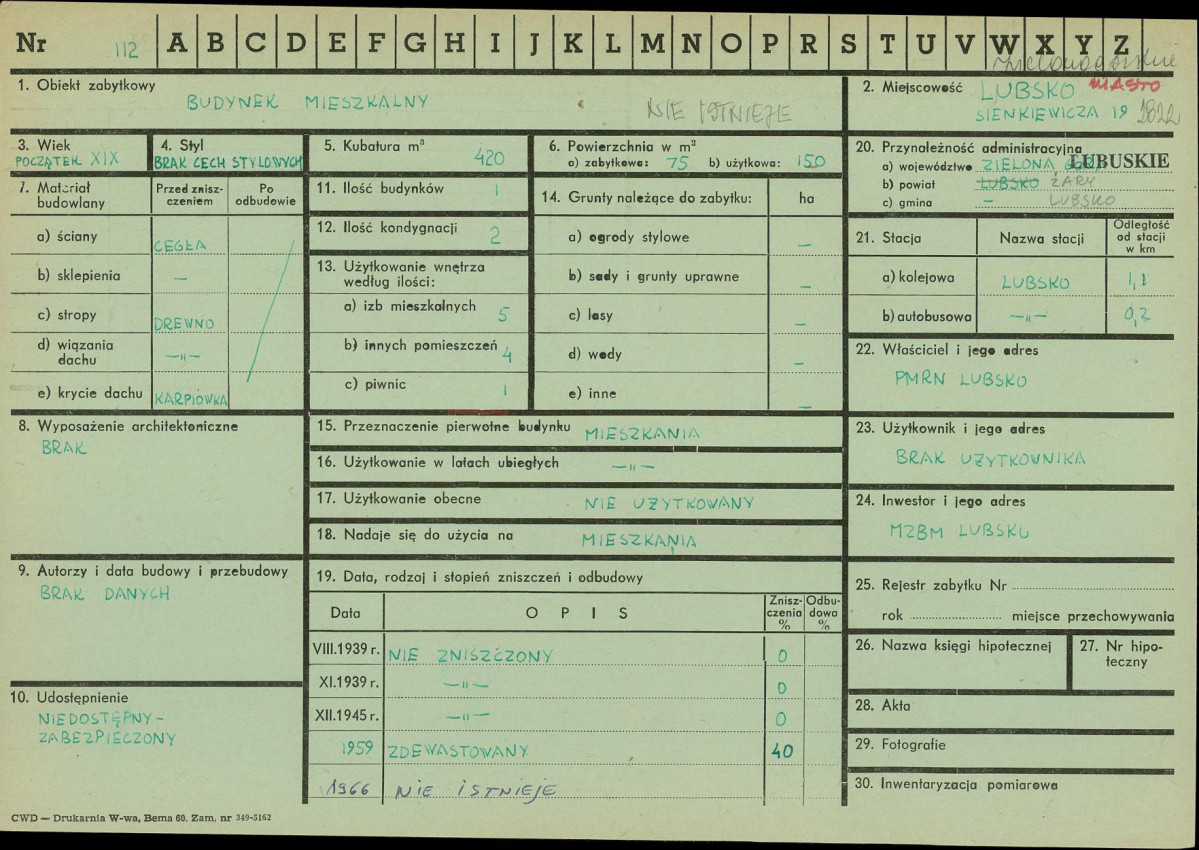 Nr 112 A B C D E F G H I J K L M N O P R S T U V W X Y Z
zielonogórskie
1. Obiekt zabytkowy
BUDYNEK MIESZKALNY
NIE ISTNIEJE
2. Miejscowość LUBSKO MIASTO
SIENKIEWICZA 19 1822
3. Wiek
POCZĄTEK XIX
4. Styl
BRAK CECH STYLOWYCH
5. Kubatura m³
420
6. Powierzchnia w m²
a) zabytkowa: 75 b) użytkowa: 150
20. Przynależność administracyjna
a) województwo ZIELONA GÓRA LUBUSKIE
b) powiat LUBSKO ŻARY
c) gmina – LUBSKO
7. Materiał budowlany
Przed zniszczeniem
Po odbudowie
a) ściany CEGŁA
b) sklepienia –
c) stropy DREWNO
d) wiązania dachu –"–
e) krycie dachu KARPIÓWKA
11. Ilość budynków 1
12. Ilość kondygnacji 2
13. Użytkowanie wnętrza
według ilości:
a) izb mieszkalnych 5
b) innych pomieszczeń 4
c) piwnic 1
14. Grunty należące do zabytku: ha
a) ogrody stylowe –
b) sady i grunty uprawne –
c) lasy –
d) wody –
e) inne –
21. Stacja Nazwa stacji Odległość od stacji w km
a) kolejowa LUBSKO 1,1
b) autobusowa –"– 0,2
22. Właściciel i jego adres
PMRN LUBSKO
8. Wyposażenie architektoniczne
BRAK
15. Przeznaczenie pierwotne budynku MIESZKANIA
16. Użytkowanie w latach ubiegłych –"–
17. Użytkowanie obecne NIE UŻYTKOWANY
18. Nadaje się do użycia na MIESZKANIA
23. Użytkownik i jego adres
BRAK UŻYTKOWNIKA
24. Inwestor i jego adres
MZBM LUBSKO
9. Autorzy i data budowy i przebudowy
BRAK DANYCH
19. Data, rodzaj i stopień zniszczeń i odbudowy
Data OPIS Zniszczenia % Odbudowa %
VIII.1939 r. NIE ZNISZCZONY 0
XI.1939 r. –"– 0
XII.1945 r. –"– 0
1959 ZDEWASTOWANY 40
1966 NIE ISTNIEJE
25. Rejestr zabytku Nr
rok miejsce przechowywania
26. Nazwa księgi hipotecznej
27. Nr hipoteczny
28. Akta
29. Fotografie
30. Inwentaryzacja pomiarowa
10. Udostępnienie
NIEDOSTĘPNY–
ZABEZPIECZONY
CWD — Drukarnia W-wa, Bema 60. Zam. nr 349-5162